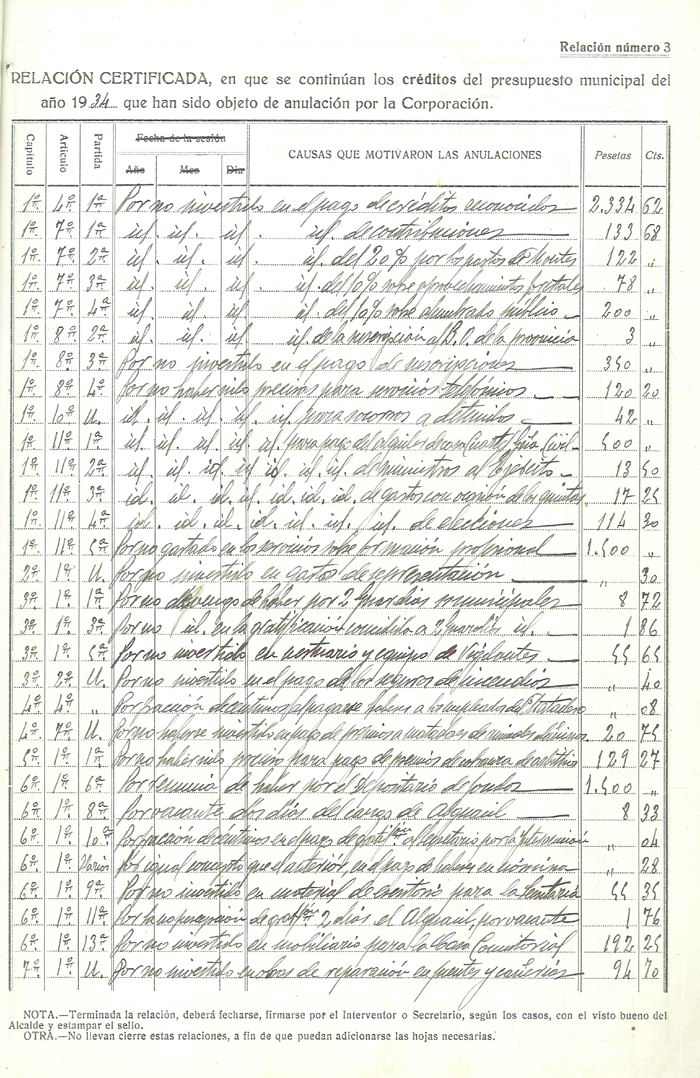 Relación número 3
RELACIÓN CERTIFICADA, en que se continúan los créditos del presupuesto municipal del
año 1934 que han sido objeto de anulación por la Corporación.
Capítulo Artículo Partida Fecha de la sesión Año Mes Día CAUSAS QUE MOTIVARON LAS ANULACIONES Pesetas Cts.
1º 4º 1ª Por no invertido en el pago de créditos reconocidos 2.334 62
1º 7º 1ª id. id. id. id. de contribuciones 133 68
1º 7º 2ª id. id. id. id. del 20 % por los pastos de Montes 122 „
1º 7º 3ª id. id. id. id. del 10 % sobre aprovechamientos forestales 78 „
1º 7º 4ª id. id. id. id. del 10 % sobre alumbrado público 200 „
1º 8º 2ª id. id. id. id. de la suscripción a/ B. O. de la provincia 3 „
1º 8º 3ª Por no invertido en el pago de suscripciones 350 „
1º 8º 4º Por no haber sido precisos para servicios telefónicos 120 20
1º 10º U. id. id. id. id. id. para socorros a detenidos 42 „
1º 11º 1ª id. id. id. id. id. para pago del alquiler de casa Cuartel Gdia Civil 500 „
1º 11º 2ª id. id. id. id. id. id. id. de suministros al Ejército 13 50
1º 11º 3ª id. id. id. id. id. id. id. de gastos con ocasión de las quintas 17 25
1º 11º 4ª id. id. id. id. id. id. id. de elecciones 114 30
1º 11º 5ª Por no gastado en los servicios sobre formación profesional 1.500 „
2º 1º U. Por no invertido en gastos de representación „ 30
3º 1º 1ª Por no devengo de haber por 2 guardias municipales 8 72
3º 1º 3ª Por no id. en la gratificación concedida a 2 guardias id. 1 86
3º 1º 5ª Por no invertido en vestuario y equipo de Vigilantes 55 65
3º 2º U. Por no invertido en el pago de los seguros de incendios „ 40
4º 4º „ Por fracción de céntimos al pagarse haberes a los empleados del Matadero „ 08
4º 7º U. Por no haberse invertido en pago de premios a matadores de animales dañinos 20 75
5º 1º 1ª Por no haber sido preciso para pago de premios de cobranza de arbitrios 129 27
6º 1º 6ª Por renuncia de haber por el Depositario de fondos 1.500 „
6º 1º 8ª Por vacante dos días del cargo de Alguacil 8 33
6º 1º 10ª Por fracción de céntimos en el pago de gratifión al Depositario por la Intervención „ 04
6º 1º Varios Por igual concepto que el anterior, en el pago de haberes en nómina „ 28
6º 1º 9ª Por no invertido en material de escritorio para la Secretaría 55 35
6º 1º 11ª Por la no percepción de gratifión 2 días el Alguacil, por vacante 1 76
6º 1º 13ª Por no invertido en mobiliario para la Casa Consistorial 192 25
7º 1º U. Por no invertido en obras de reparación en puentes y cañerías 94 70
NOTA.—Terminada la relación, deberá fecharse, firmarse por el Interventor o Secretario, según los casos, con el visto bueno del
Alcalde y estampar el sello.
OTRA.—No llevan cierre estas relaciones, a fin de que puedan adicionarse las hojas necesarias.